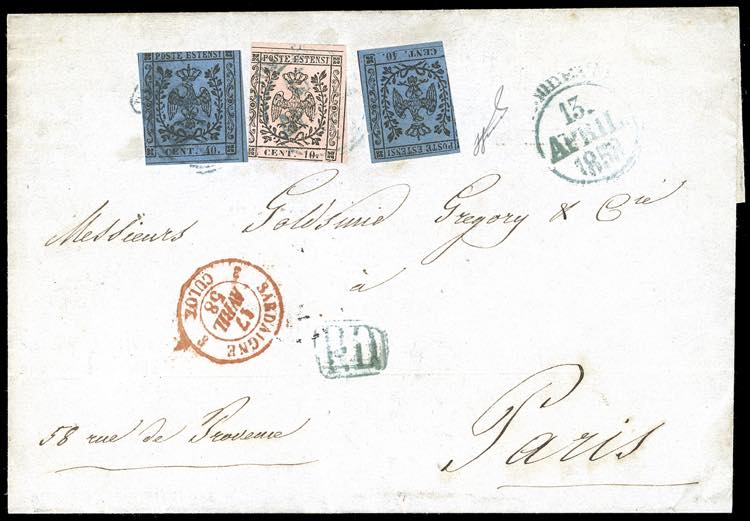 POSTE ESTENSI
CENT. 40.
POSTE ESTENSI
CENT. 10.
POSTE ESTENSI
CENT. 40.
13.
AVRIL
1858
Messieurs Goldsmid Gregory & Cie
à
SARDAIGNE
2 2
17
AVRIL
58
CULOZ
P.D.
Paris
58 rue de Provence